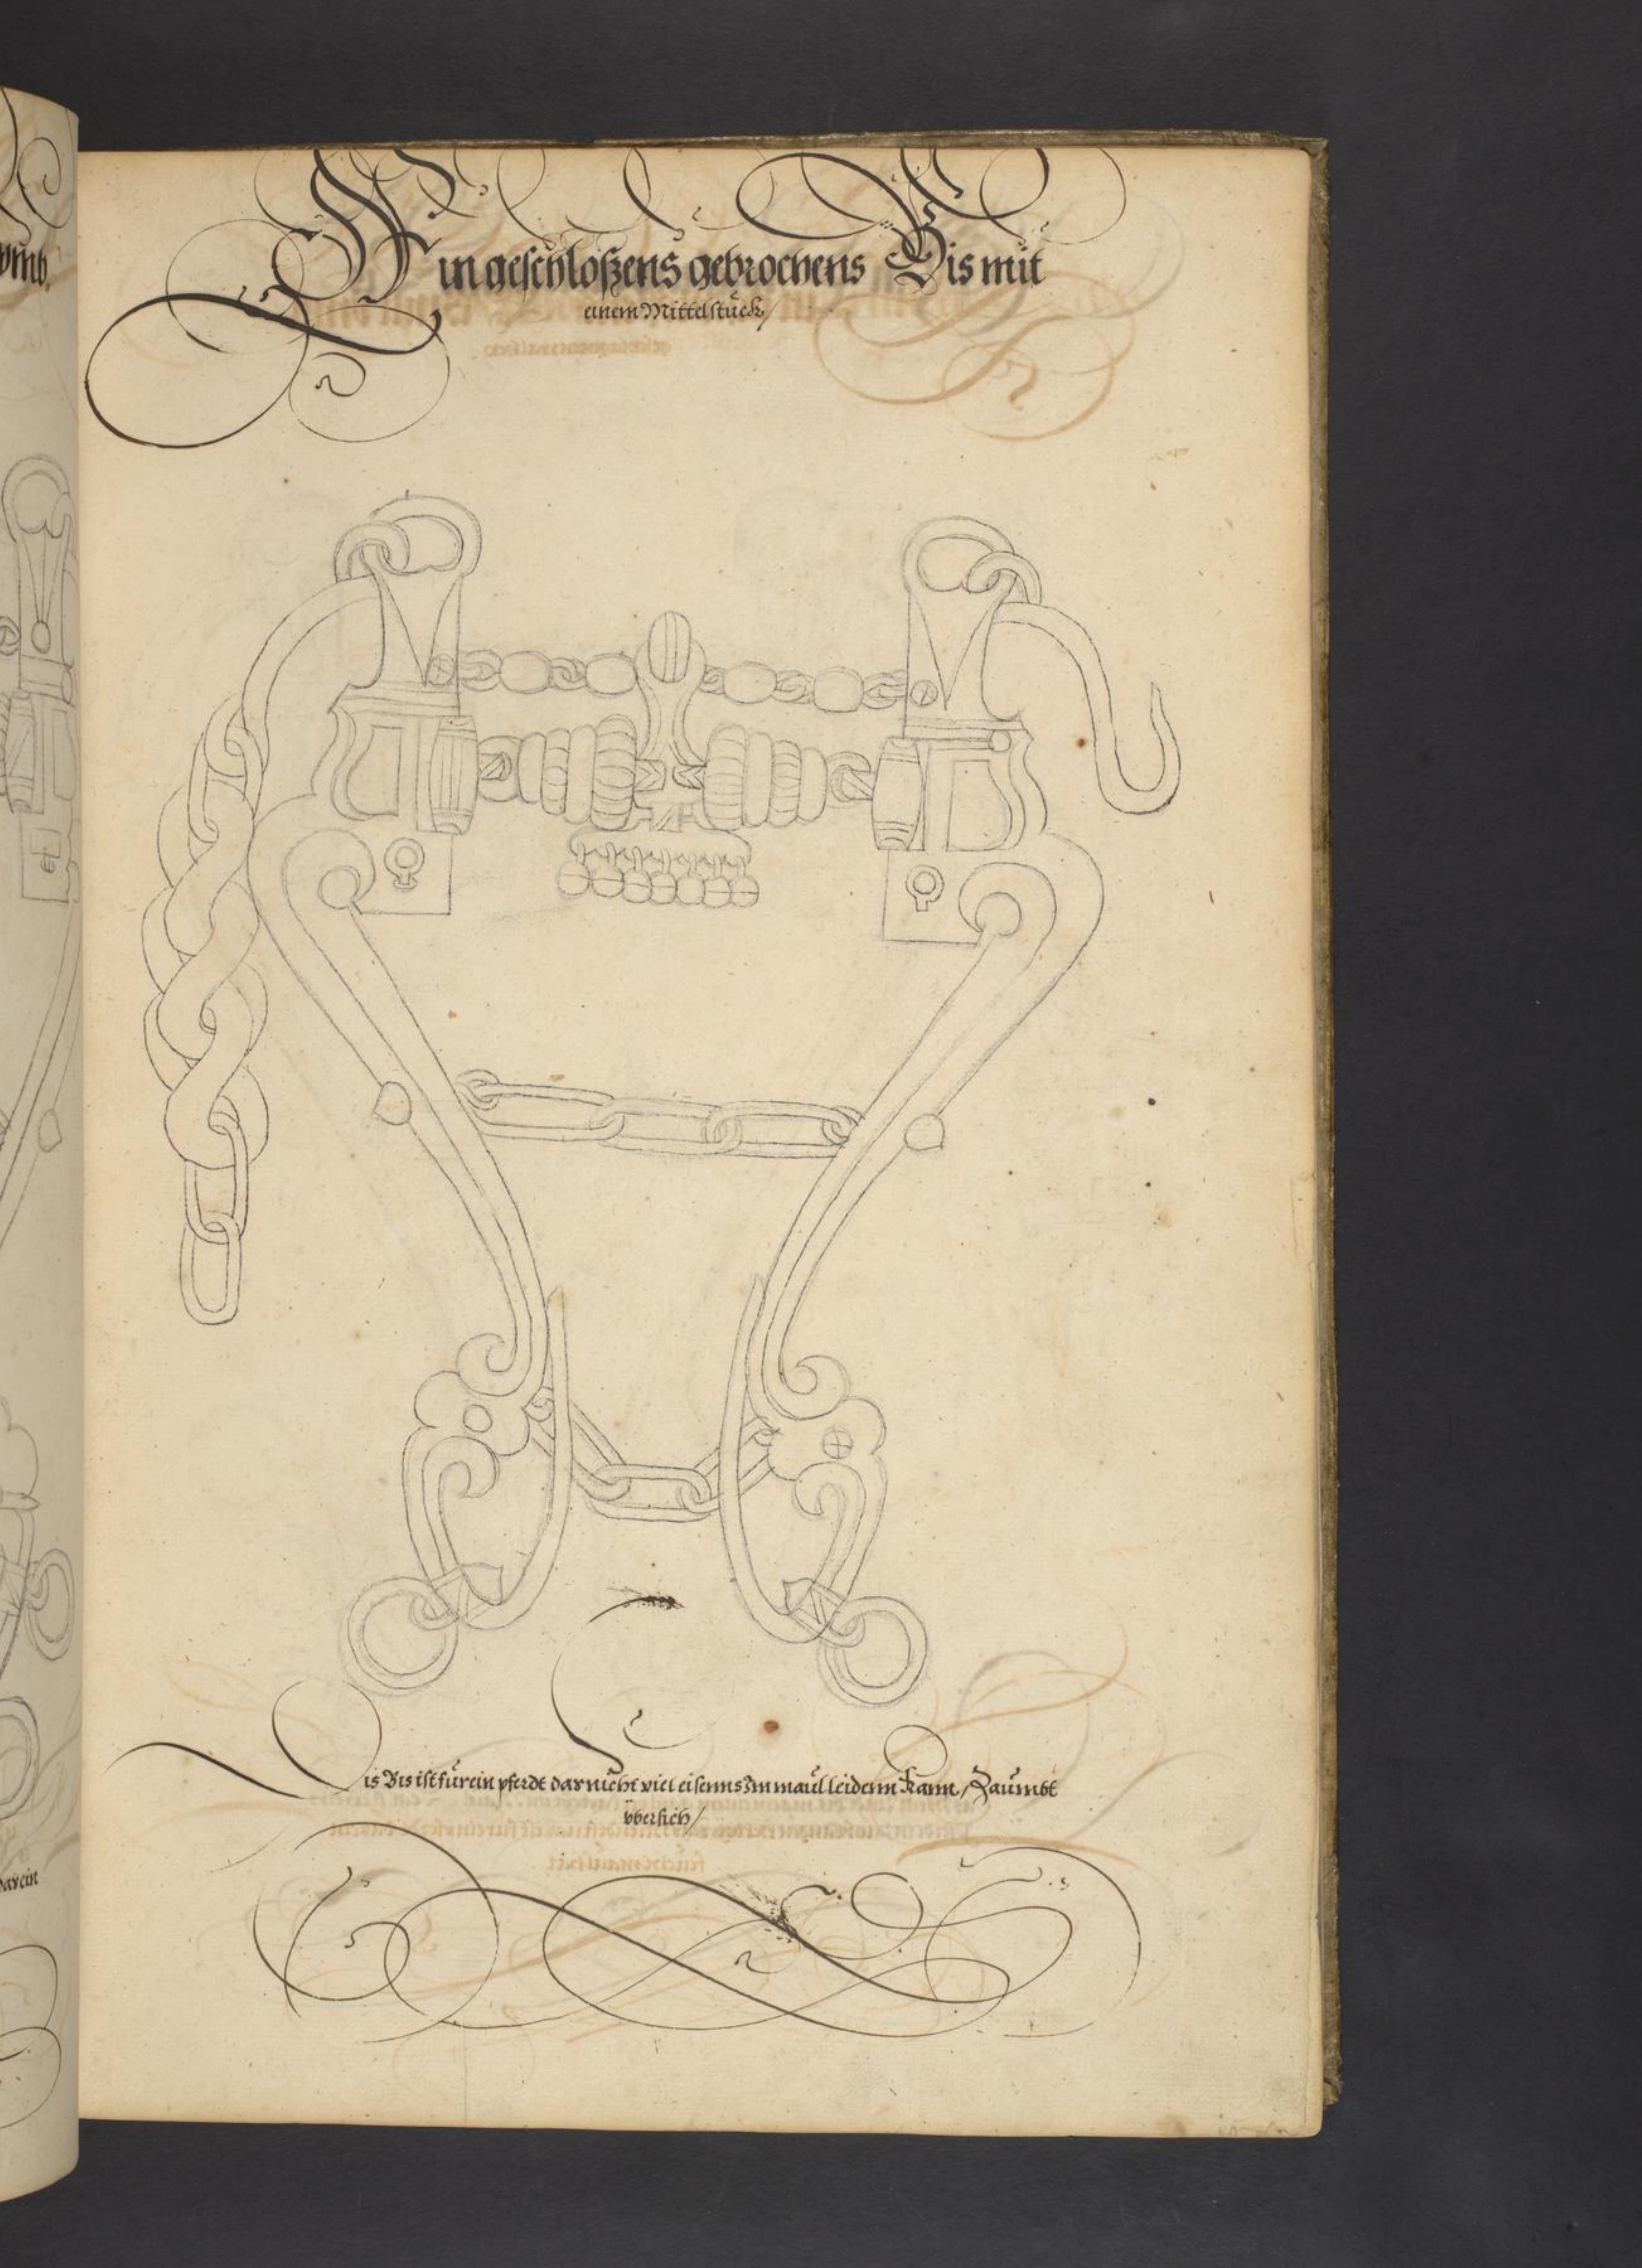 vmb
Ein geschloßens gebrochens Bis mit
einem Mittelstuck/
Dis Bis ist fur ein pferdt dar nicht viel eisenns Im maul leidenn kann / Zaumbt
vbersich/
darein